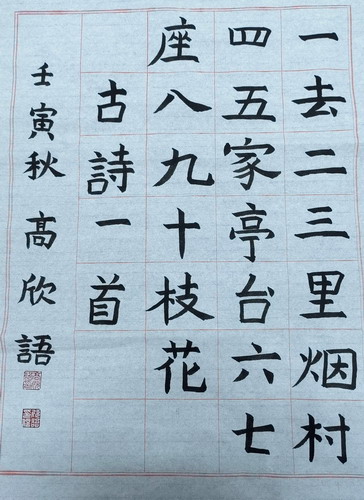 一去二三里烟村
四五家亭台六七
座八九十枝花
古詩一首
壬寅秋高欣語